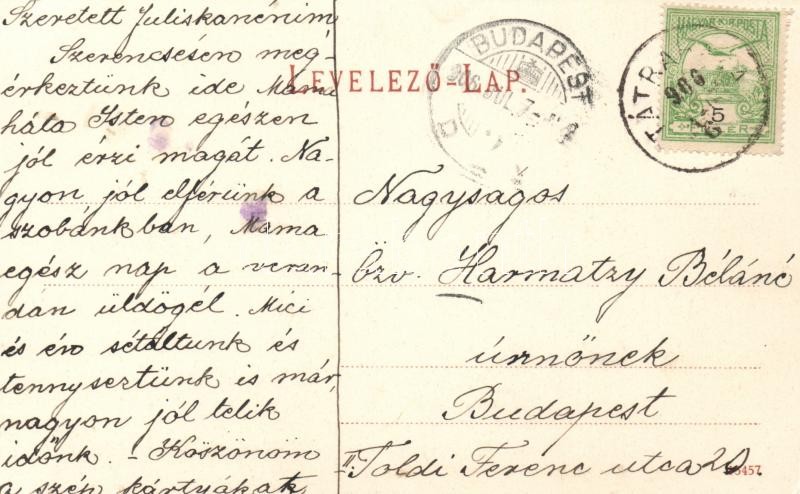 Szeretett Juliskanénim
Szerencsésen meg-
érkeztünk ide Mama
hála Isten egészen
jól érzi magát. Na-
gyon jól elférünk a
szobánkban, Mama
egész nap a veran-
dán üldögél. Mici
és én sétáltunk és
tennyseztünk is már,
nagyon jól telik
időnk. - Köszönöm
a szép kártyákat
LEVELEZŐ-LAP.
BUDAPEST
906 JUL. 7
D
MAGYAR KIR. POSTA
5
FILLER
TÁTRA
906
Nagyságos
özv. Harmatzy Béláné
úrnőnek
Budapest
II. Toldi Ferenc utca 20.